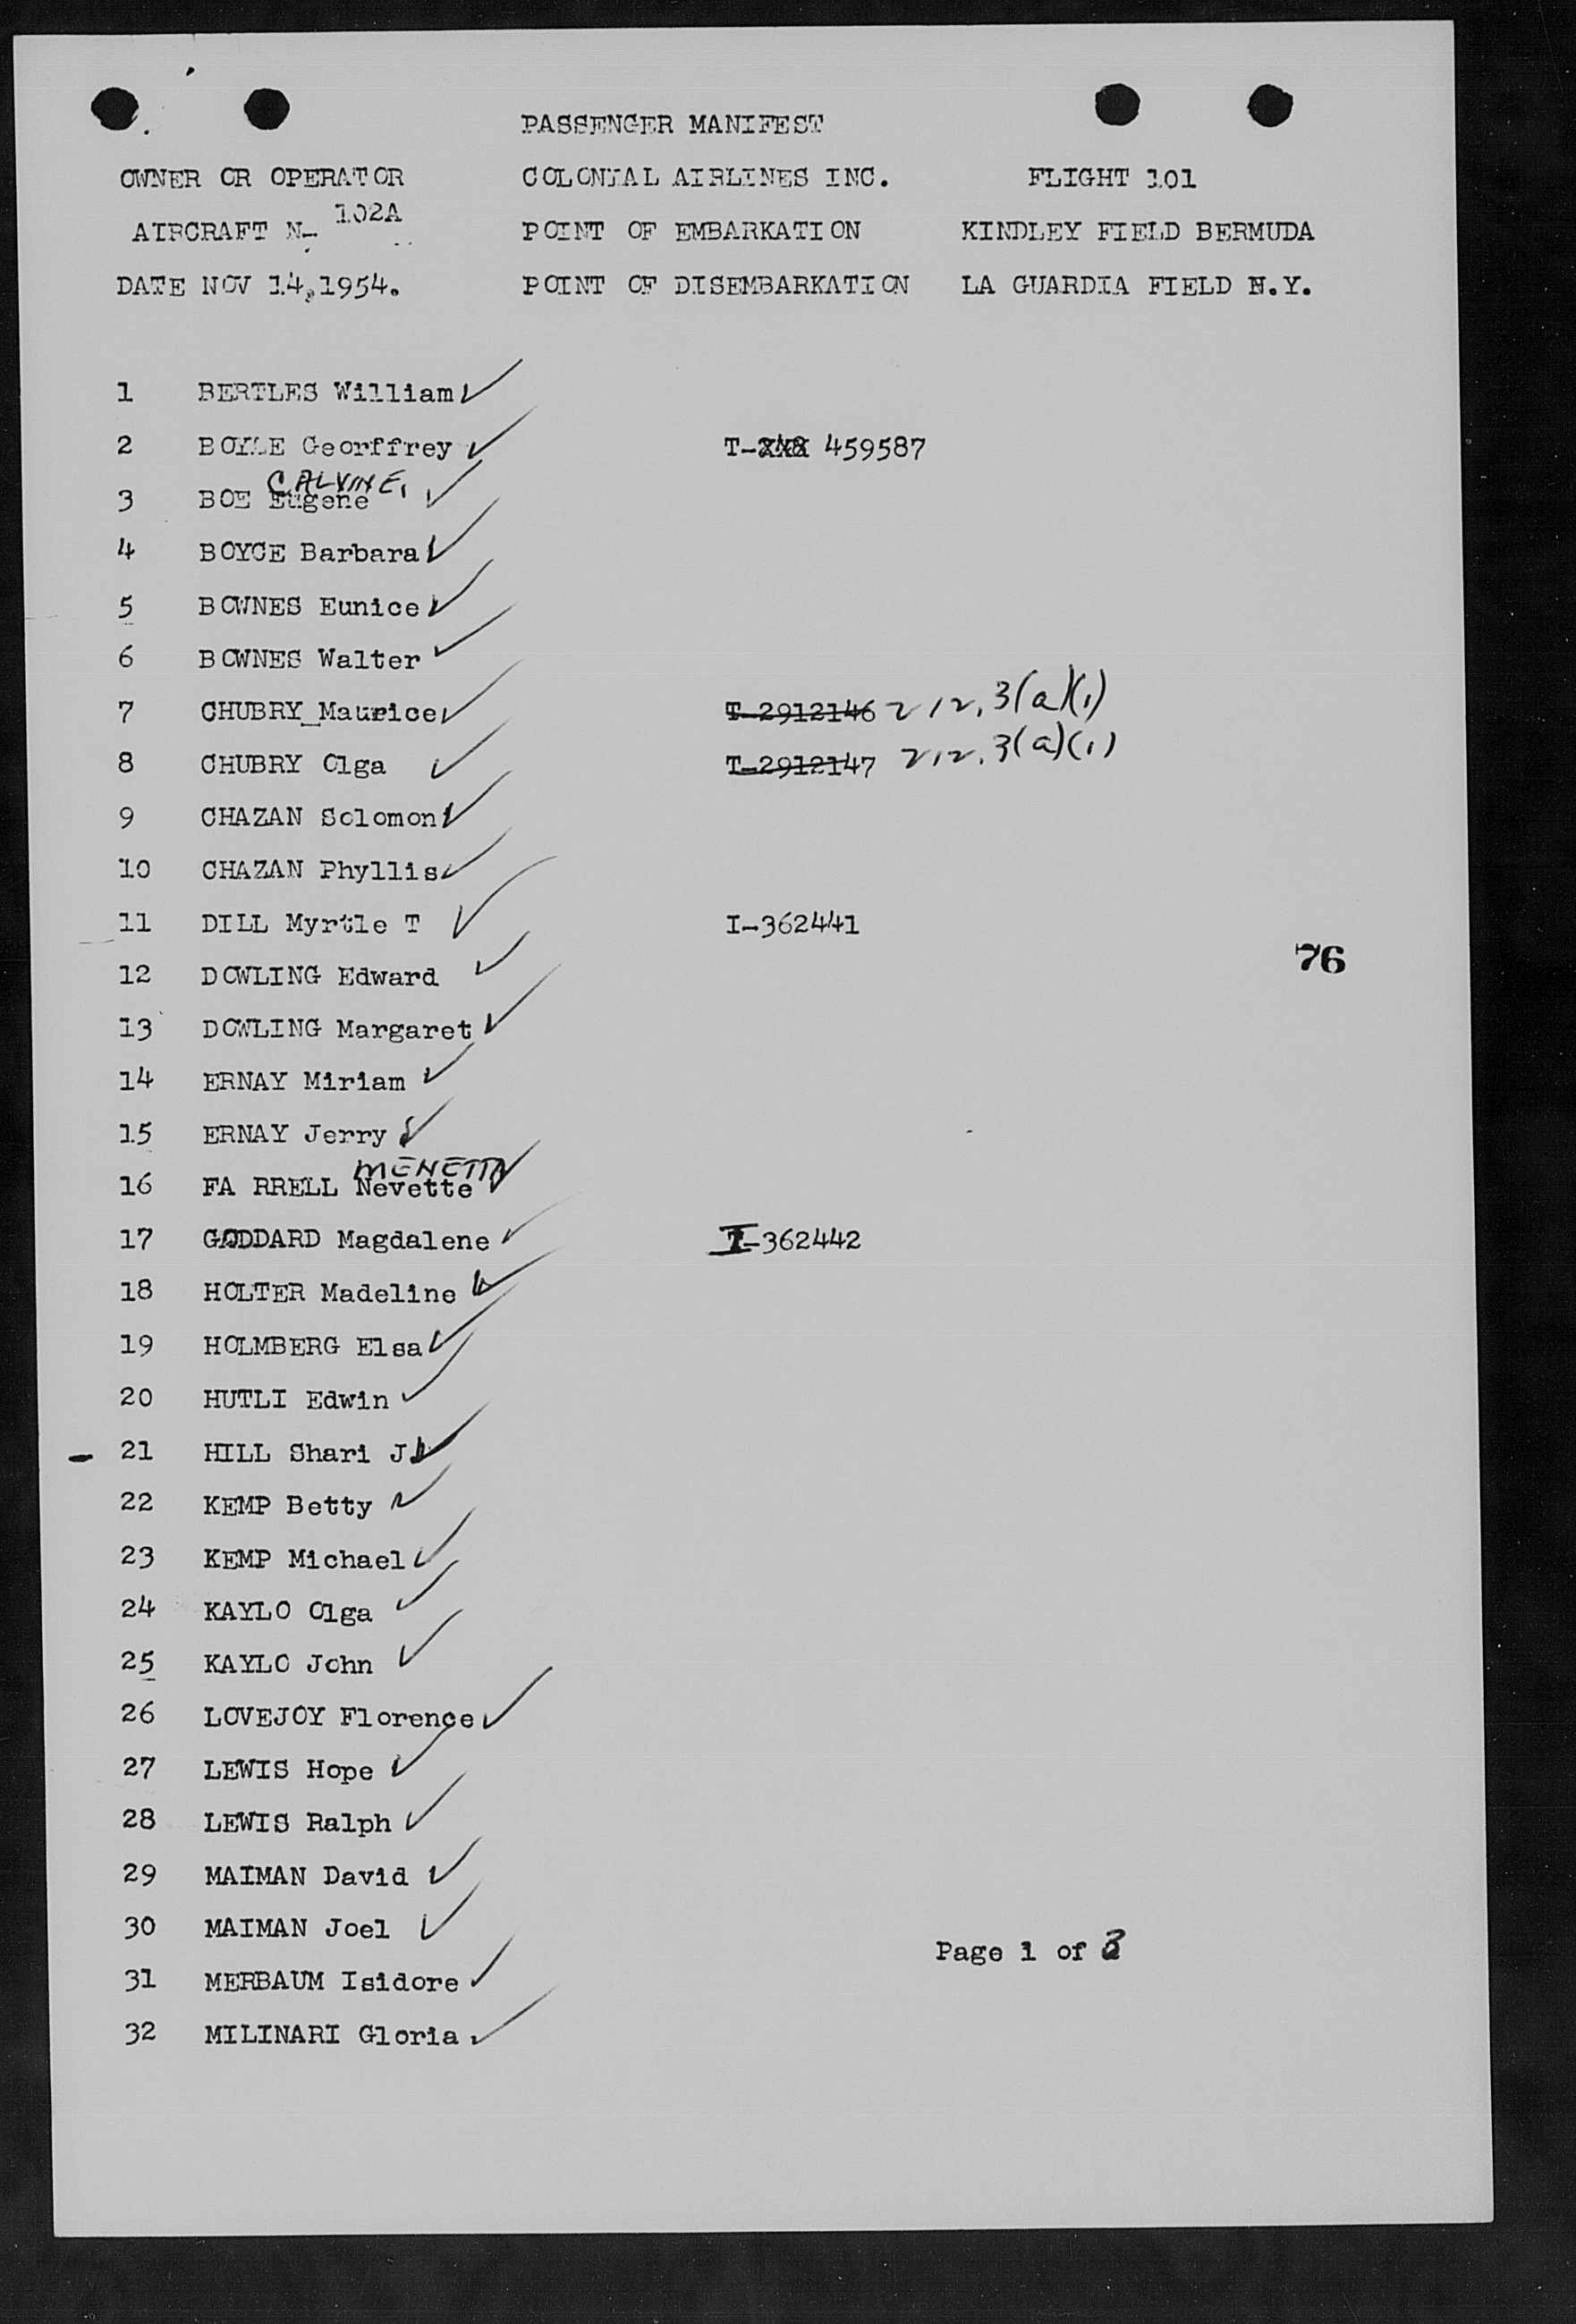 PASSENGER MANIFEST
OWNER OR OPERATOR COLONIAL AIRLINES INC. FLIGHT 101
AIRCRAFT N- 102A POINT OF EMBARKATION KINDLEY FIELD BERMUDA
DATE NOV 14,1954. POINT OF DISEMBARKATION LA GUARDIA FIELD N.Y.
1 BERTLES William
2 BOYLE Georffrey T- 459587
CALVIN E.
3 BOE Eugene
4 BOYCE Barbara
5 BOWNES Eunice
6 BOWNES Walter
7 CHUBRY Maurice T-2912146 212.3(a)(1)
8 CHUBRY Olga T-2912147 212.3(a)(1)
9 CHAZAN Solomon
10 CHAZAN Phyllis
11 DILL Myrtle T I-362441
76
12 DOWLING Edward
13 DOWLING Margaret
14 ERNAY Miriam
15 ERNAY Jerry
MENETTA
16 FA RRELL Nevette
17 GODDARD Magdalene I-362442
18 HOLTER Madeline
19 HOLMBERG Elsa
20 HUTLI Edwin
21 HILL Shari J
22 KEMP Betty
23 KEMP Michael
24 KAYLO Olga
25 KAYLO John
26 LOVEJOY Florence
27 LEWIS Hope
28 LEWIS Ralph
29 MAIMAN David
30 MAIMAN Joel
Page 1 of 3
31 MERBAUM Isidore
32 MILINARI Gloria